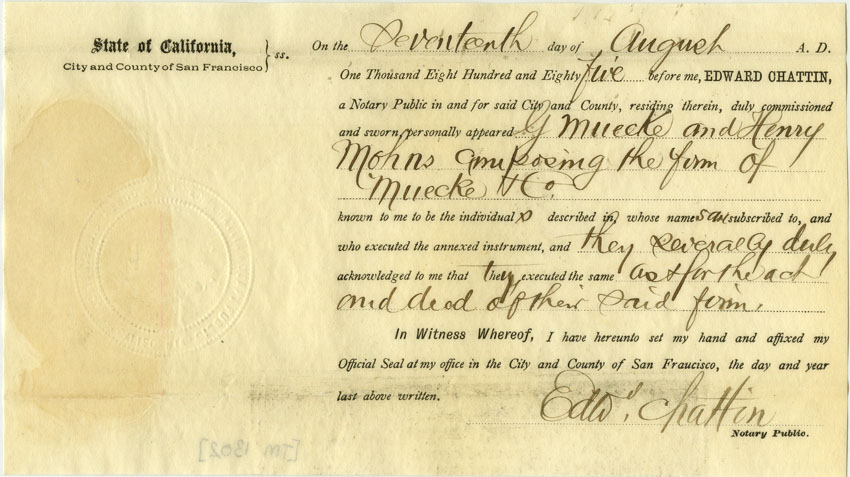 State of California,
City and County of San Francisco } ss.
On the Seventeenth day of August A. D.
One Thousand Eight Hundred and Eighty five before me, EDWARD CHATTIN,
a Notary Public in and for said City and County, residing therein, duly commissioned
and sworn, personally appeared G Muecke and Henry
Mohns composing the firm of
Muecke & Co.
known to me to be the individual s described in, whose names are subscribed to, and
who executed the annexed instrument, and they severally duly
acknowledged to me that they executed the same as & for the act
and deed of their said firm.
In Witness Whereof, I have hereunto set my hand and affixed my
Official Seal at my office in the City and County of San Francisco, the day and year
last above written.
Edwd. Chattin
Notary Public.
[TM 1302]